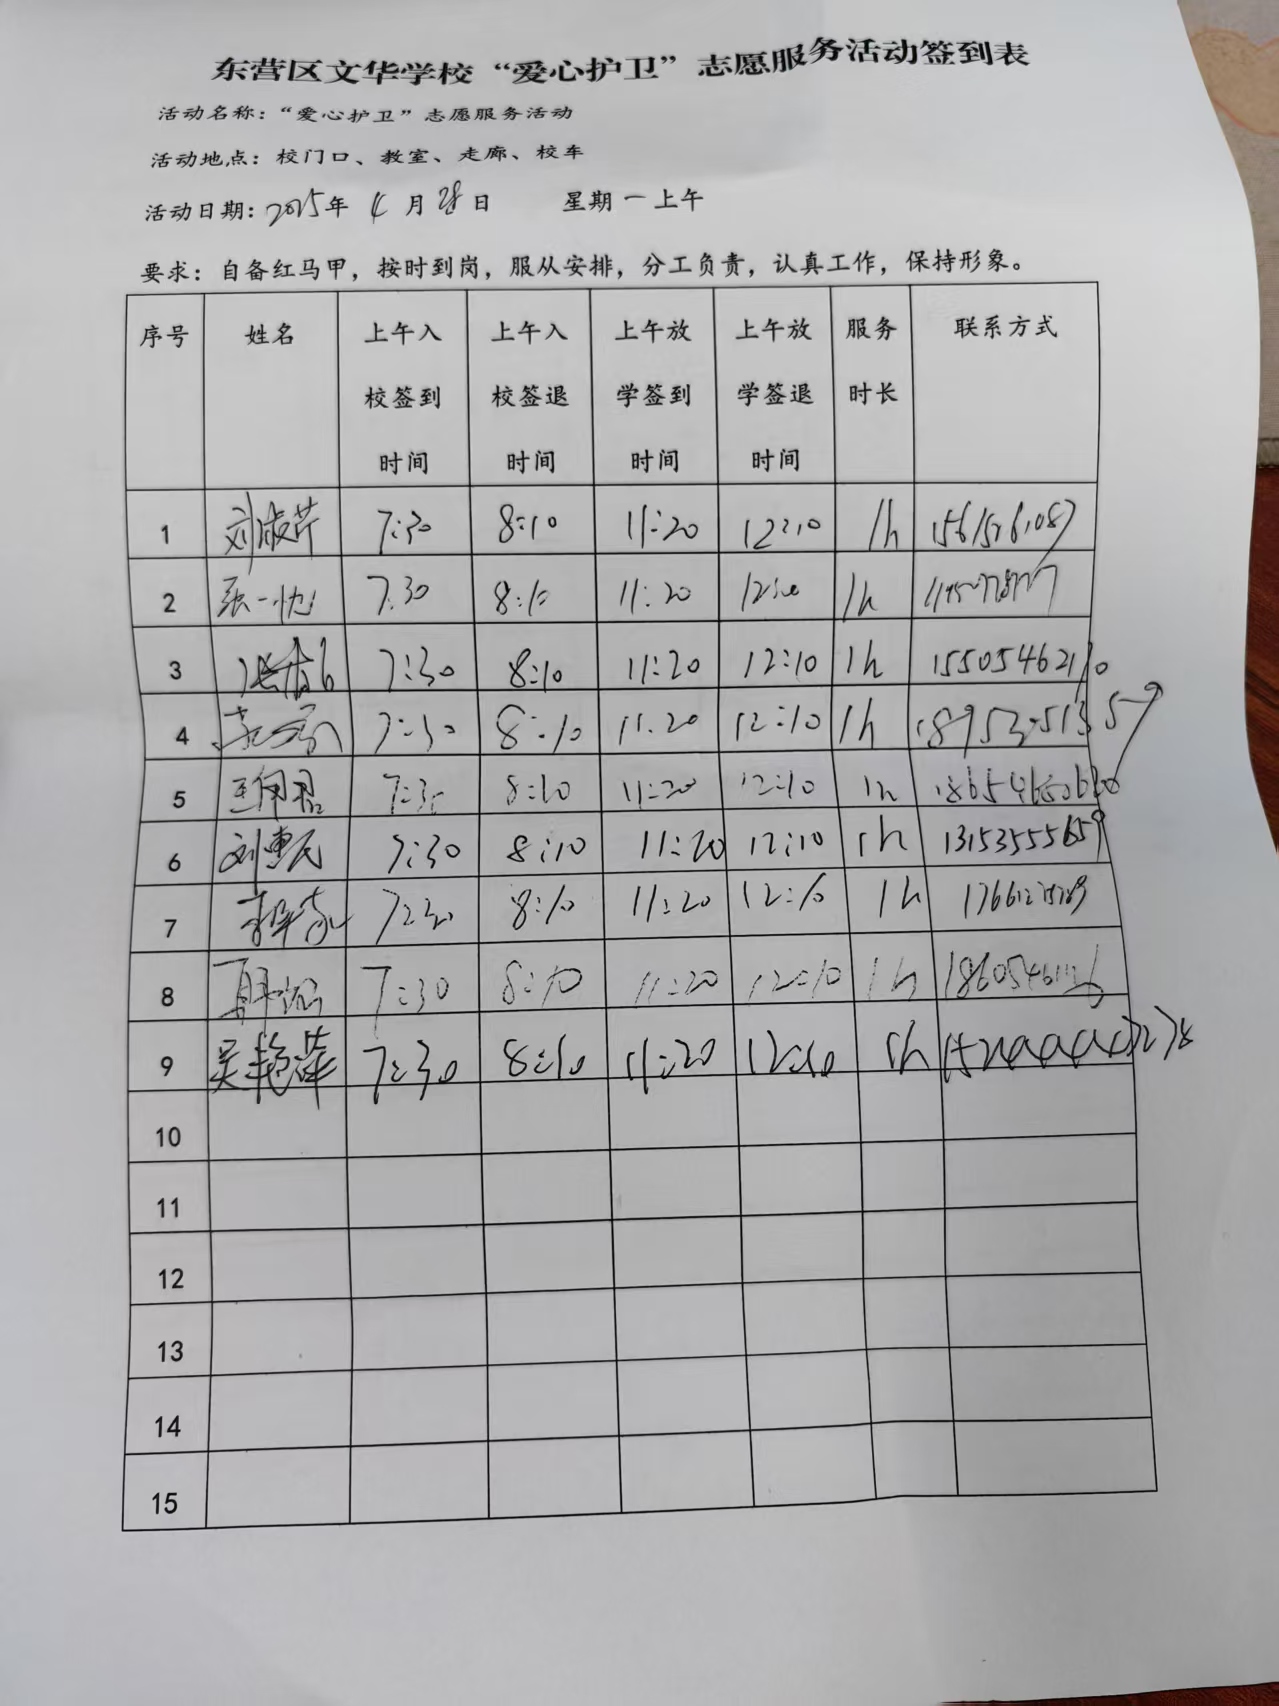 东营区文华学校“爱心护卫”志愿服务活动签到表
活动名称：“爱心护卫”志愿服务活动
活动地点：校门口、教室、走廊、校车
活动日期：2025年 4 月 28 日 星期一上午
要求：自备红马甲，按时到岗，服从安排，分工负责，认真工作，保持形象。
序号 姓名 上午入校签到时间 上午入校签退时间 上午放学签到时间 上午放学签退时间 服务时长 联系方式
1 刘淑芹 7:30 8:10 11:20 12:10 1h
2 张一忱 7:30 8:10 11:20 1h
3 7:30 8:10 11:20 12:10 1h
4 7:30 8:10 11:20 12:10 1h
5 7:30 8:10 11:20 12:10 1h
6 刘惠民 7:30 8:10 11:20 12:10 1h 13153555659
7 7:30 8:10 11:20 12:10 1h
8 7:30 8:10 11:20 12:10 1h
9 吴艳萍 7:30 8:10 11:20 12:10 1h
10
11
12
13
14
15